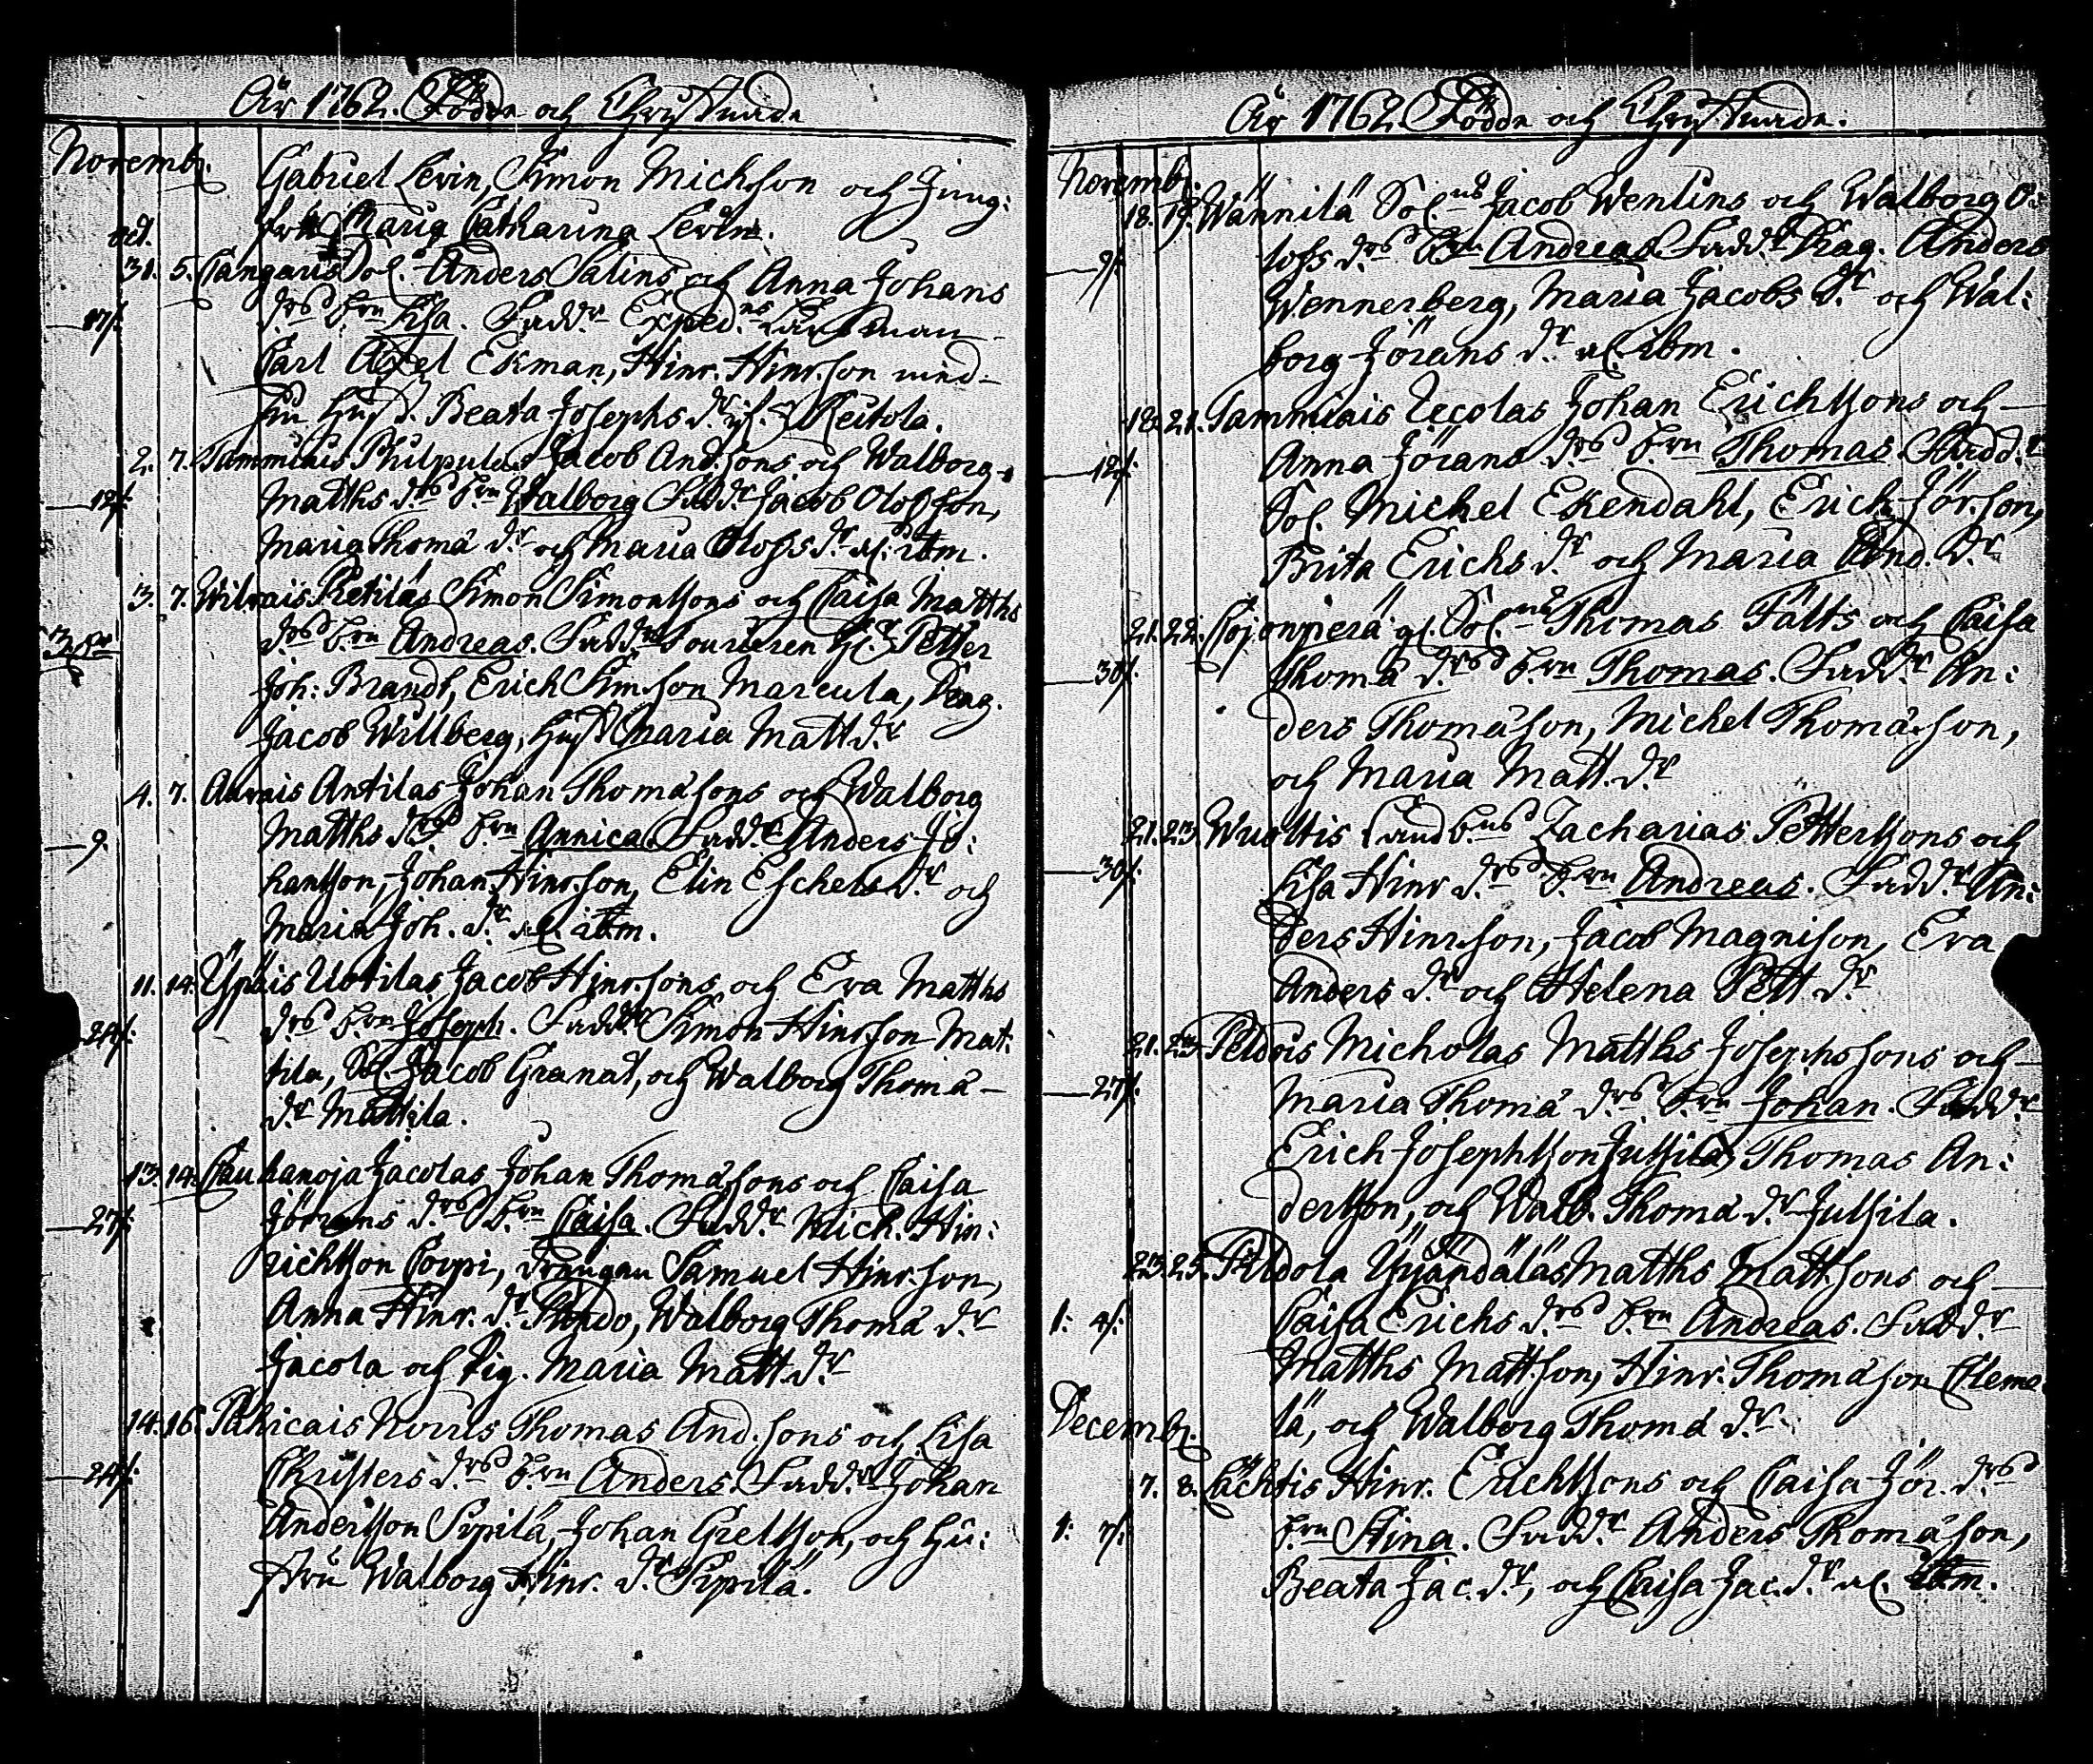 År 1762. Födde och Christnade
Novembr.
Gabriel Levin, Simon Michsson och Jung:
fru Maria Catharina Levin.
oct.
31. 5. Cangaris Sol. Anders Salins och Anna Johans
17/: drs b:rn Lisa. Fadd:r Exped:ns Länsman
Carl Axel Ekman, Hinr. Hinr.son med
sin hust. Beata Josephs d:r Keitola.
2. 7. Tammiais Philpulas Jacob And.sons och Walborg
12/: Matths d:rs b:rn Walborg Fadd:r Jacob Olofson,
Maria Thomä d:r och Maria Olofs d:r al. ibm.
3. 7. Wilvais Pietiläs Simon Simontsons och Caisa Matths
d:rs b:rn Andreas. Fadd:r Fourieren H:r Petter
Joh: Brandt, Erich Sim.son Marcula, Drag.
Jacob Willberg, hust. Maria Matt d:r
4. 7. Aurais Antilas Johan Thomäsons och Walborg
9. Matths d:rs b:rn Annica. Fadd:r Anders Jo:
hantson, Johan Hinr.son, Elin Eschels d:r och
Maria Joh. d:r al. ibm.
11. 14. Ypäis Uotilas Jacob Hinr.sons och Eva Matths
24/: d:rs b:rn Joseph. Fadd:r Simon Hinr.son Mat:
tila, Sol. Jacob Granat, och Walborg Thomä
d:r Mattila.
13. 14. Cauhanoja Jacolas Johan Thomäsons och Caisa
27/: Jörans d:rs b:rn Caisa. Fadd:r Mich. Hin:
richtson Coppi, drängan Samuel Hinr.son,
Anna Hinr. d:r Pendo, Walborg Thomä d:r
Jacola och Pig. Maria Matt d:r
14. 16. Pahicais Norris Thomas And.sons och Lisa
24/: Christers d:rs b:rn Anders. Fadd:r Johan
Andertson Sipilä, Johan Greltson, och hu:
stru Walborg Hinr. d:r Sipilä.
År 1762 Födde och Christnade.
Novembr.
18. 19. Wännilä Sol:ns Jacob Wenlins och Walborg O:
9/: lofs d:rs b:rn Andreas. Fadd:r Drag. Anders
Wennerberg, Maria Jacobs d:r och Wal:
borg Jörans d:r al. ibm.
18. 21. Tammiais Uccolas Johan Erichtsons och
12/: Anna Jörans d:rs b:rn Thomas. Fadd:r
Sol. Michel Ekendahl, Erich Jör.son,
Brita Erichs d:r och Maria And. d:r
21. 22. Cojonperä gl. Sol:ns Thomas Fälts och Caisa
30/: Thomä d:rs b:rn Thomas. Fadd:r An:
ders Thomäson, Michel Thomäson,
och Maria Matt. d:r
21. 23. Wuoltis Landb:ns Zacharias Pettertsons och
30/: Lisa Hinr. d:rs b:rn Andreas. Fadd:r An:
ders Hinr.son, Jacob Magnison, Eva
Anders d:r och Helena Pett d:r
21. 23. Peldois Micholas Matths Josephssons och
27/: Maria Thomä d:rs b:rn Johan. Fadd:r
Erich Josephtson Jutsila, Thomas An:
dertson, och Walb. Thomä d:r Jutsila.
23. 25. Peldola Yjändäläs Matths Matt.sons och
1: 4/: Caisa Erichs d:rs b:rn Andreas. Fadd:r
Matths Matt.son, Hinr. Thomäson Cleme
lä, och Walborg Thomä d:r
Decembr.
7. 8. Cächtis Hinr. Erichtsons och Caisa Jör. d:rs
1: 7/: b:rn Stina. Fadd:r Anders Thomäson,
Beata Jac. d:r, och Caisa Jac. d:r al. ibm.